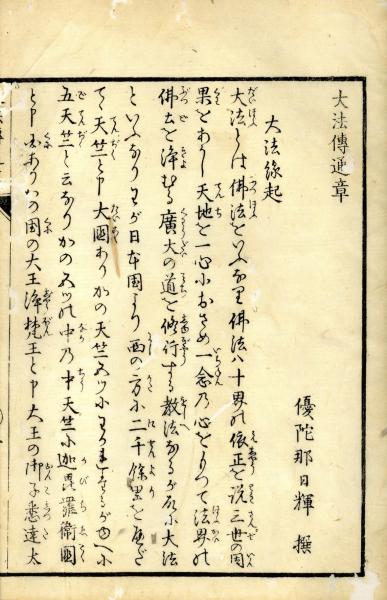 大法傳通章
優陀那日輝 撰
大法縁起
大法とは佛法をいふなり佛法ハ十界の依正を説三世の因
果をあかし天地を一心におさめ一念乃心をもつて法界の
佛土を浄むる廣大の道を修行する教法なるが故に大法
といふなりわが日本國より西の方に二千餘里をへだ
て天竺と申大國ありかの天竺五ツにわかれたるがゆへに
五天竺と云なりかの五ツの中乃中天竺に迦毘羅衛國
と申國ありかの国の大王浄梵王と申大王の御子悉達太